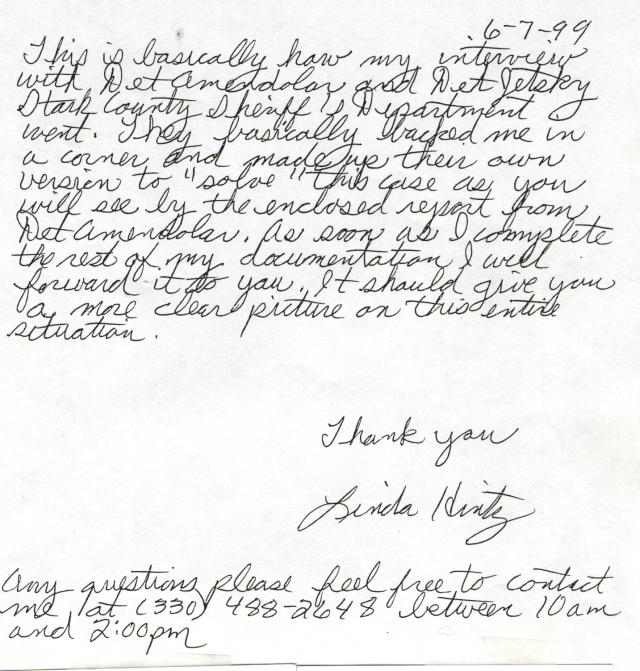 6-7-99
This is basically how my interview
with Det Amendolar and Det Jetsky
Stark County Sheriff's Department
went. They basically backed me in
a corner and made up their own
version to "solve" this case as you
will see by the enclosed report from
Det Amendolar. As soon as I complete
the rest of my documentation I will
forward it to you. It should give you
a more clear picture on this entire
situation.
Thank you
Linda Hintz
Any questions please feel free to contact
me at (330) 488-2648 between 10am
and 2:00pm